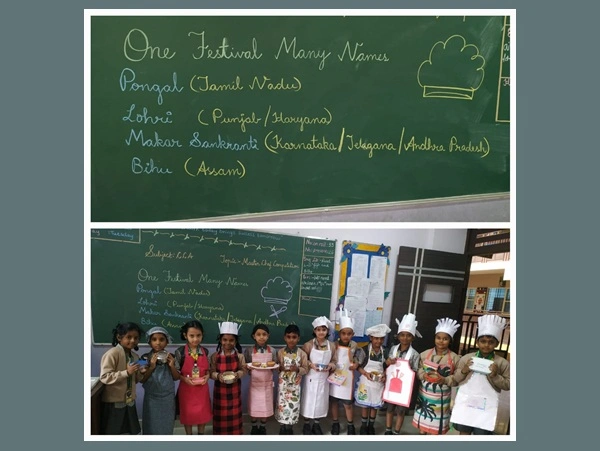 One Festival Many Names
Pongal (Tamil Nadu)
Lohri (Punjab/Haryana)
Makar Sankranti (Karnataka/Telagana/Andhra Pradesh)
Bihu (Assam)
Subject: CCA
Topic:- Master Chef Competition
One Festival Many Names
Pongal (Tamil Nadu)
Lohri (Punjab/Haryana)
Makar Sankranti (Karnataka/Telagana/Andhra Prad
Bihu (Assam